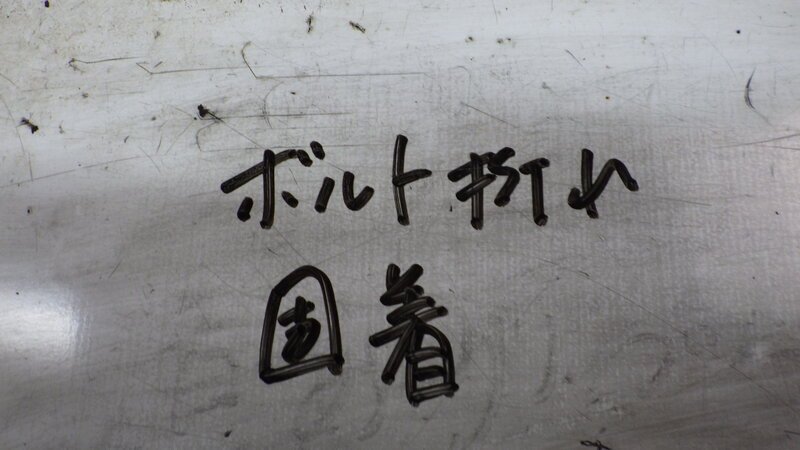 ボルト折れ
固着